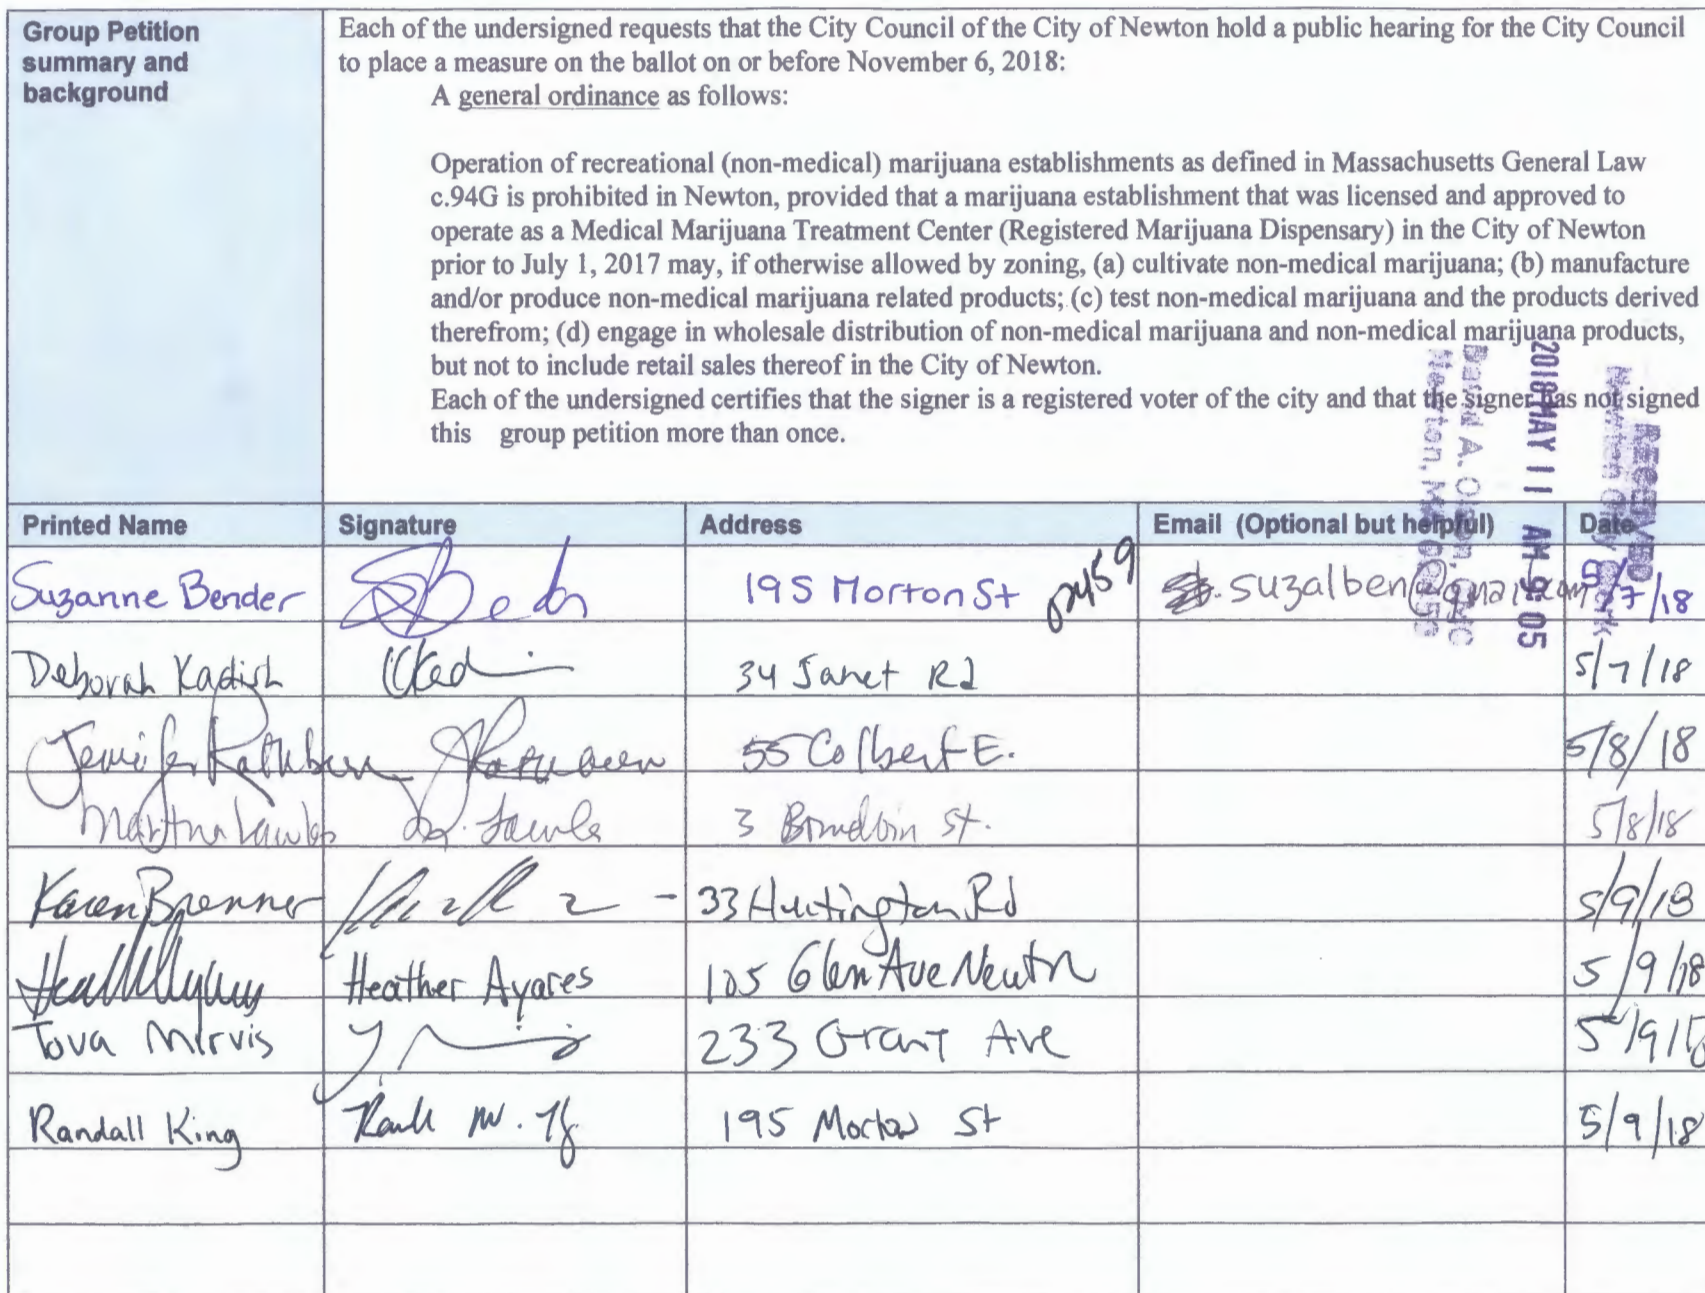 Group Petition
summary and
background
Each of the undersigned requests that the City Council of the City of Newton hold a public hearing for the City Council
to place a measure on the ballot on or before November 6, 2018:
A general ordinance as follows:
Operation of recreational (non-medical) marijuana establishments as defined in Massachusetts General Law
c.94G is prohibited in Newton, provided that a marijuana establishment that was licensed and approved to
operate as a Medical Marijuana Treatment Center (Registered Marijuana Dispensary) in the City of Newton
prior to July 1, 2017 may, if otherwise allowed by zoning, (a) cultivate non-medical marijuana; (b) manufacture
and/or produce non-medical marijuana related products; (c) test non-medical marijuana and the products derived
therefrom; (d) engage in wholesale distribution of non-medical marijuana and non-medical marijuana products,
but not to include retail sales thereof in the City of Newton.
Each of the undersigned certifies that the signer is a registered voter of the city and that the signer has not signed
this group petition more than once.
RECEIVED
Newton City Clerk
2018 MAY 11 AM 9:05
David A. Olson, CMC
Newton, MA 02459
Printed Name Signature Address Email (Optional but helpful) Date
Suzanne Bender 195 Morton St 02459 suzalben@gmail.com 5/7/18
Deborah Kadish 34 Janet Rd 5/7/18
Jennifer Rathbun 55 Colbert E. 5/8/18
Martha 3 St. 5/8/18
Karen Brenner 33 Huntington Rd 5/9/18
Heather Ayares 105 Glen Ave Newton 5/9/18
Tova Mirvis 233 Grant Ave 5/9/18
Randall King 195 Morton St 5/9/18